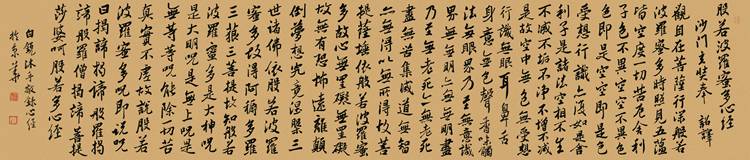 般若波羅蜜多心經
沙門玄奘奉 詔譯
觀自在菩薩行深般若
波羅蜜多時照見五蘊
皆空度一切苦厄舍利
子色不異空空不異色
色即是空空即是色
受想行識亦復如是舍
利子是諸法空相不生
不滅不垢不淨不增不減
是故空中無色無受想
行識無眼耳鼻舌
身意無色聲香味觸
法無眼界乃至無意識
界無無明亦無無明盡
乃至無老死亦無老死
盡無苦集滅道無智
亦無得以無所得故菩
提薩埵依般若波羅蜜
多故心無罣礙無罣礙
故無有恐怖遠離顛
倒夢想究竟涅槃三
世諸佛依般若波羅
蜜多故得阿耨多羅
三藐三菩提故知般若
波羅蜜多是大神呪
是大明呪是無上呪是
無等等呪能除一切苦
真實不虛故說般若
波羅蜜多呪即說呪
曰揭諦揭諦般羅揭
諦般羅僧揭諦菩提
莎婆呵般若多心經
沐手敬錄心經
於京華